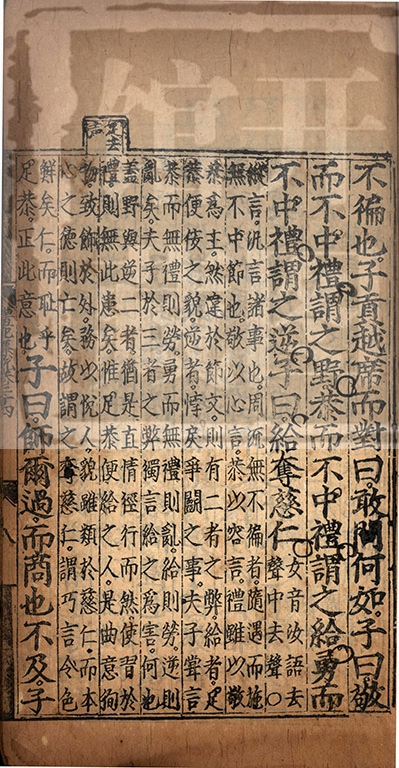 不徧也。子貢越席而對曰。敢問何如。子曰。敬
而不中禮謂之野。恭而不中禮謂之給。勇而
不中禮謂之逆。子曰。給奪慈仁。
女音汝語去
聲中去聲○
縱言汎言諸事也。周流無不徧者。隨遇而施
無不中節也。敬以心言。恭以容言。禮雖以敬
恭爲主。然違於節文。則有二者之弊。給者。足
恭便佞之貌。逆者。悖戾爭鬭之事。夫子嘗言
恭而無禮則勞。勇而無禮則亂。給則勞。逆則
亂矣。夫子於三者之弊。獨言給之爲害。何也
蓋野與逆二者。猶是直情徑行而然。使習於
禮。則無此患矣。惟足恭便給之人。是曲意徇
物。致飾於外。務以悅人。貌雖類於慈仁。而本
心之德則亡矣。故謂之奪慈仁。謂巧言令色
鮮矣仁。而恥乎
足恭。正此意也
子曰。師爾過。而商也不及。子
足去
聲